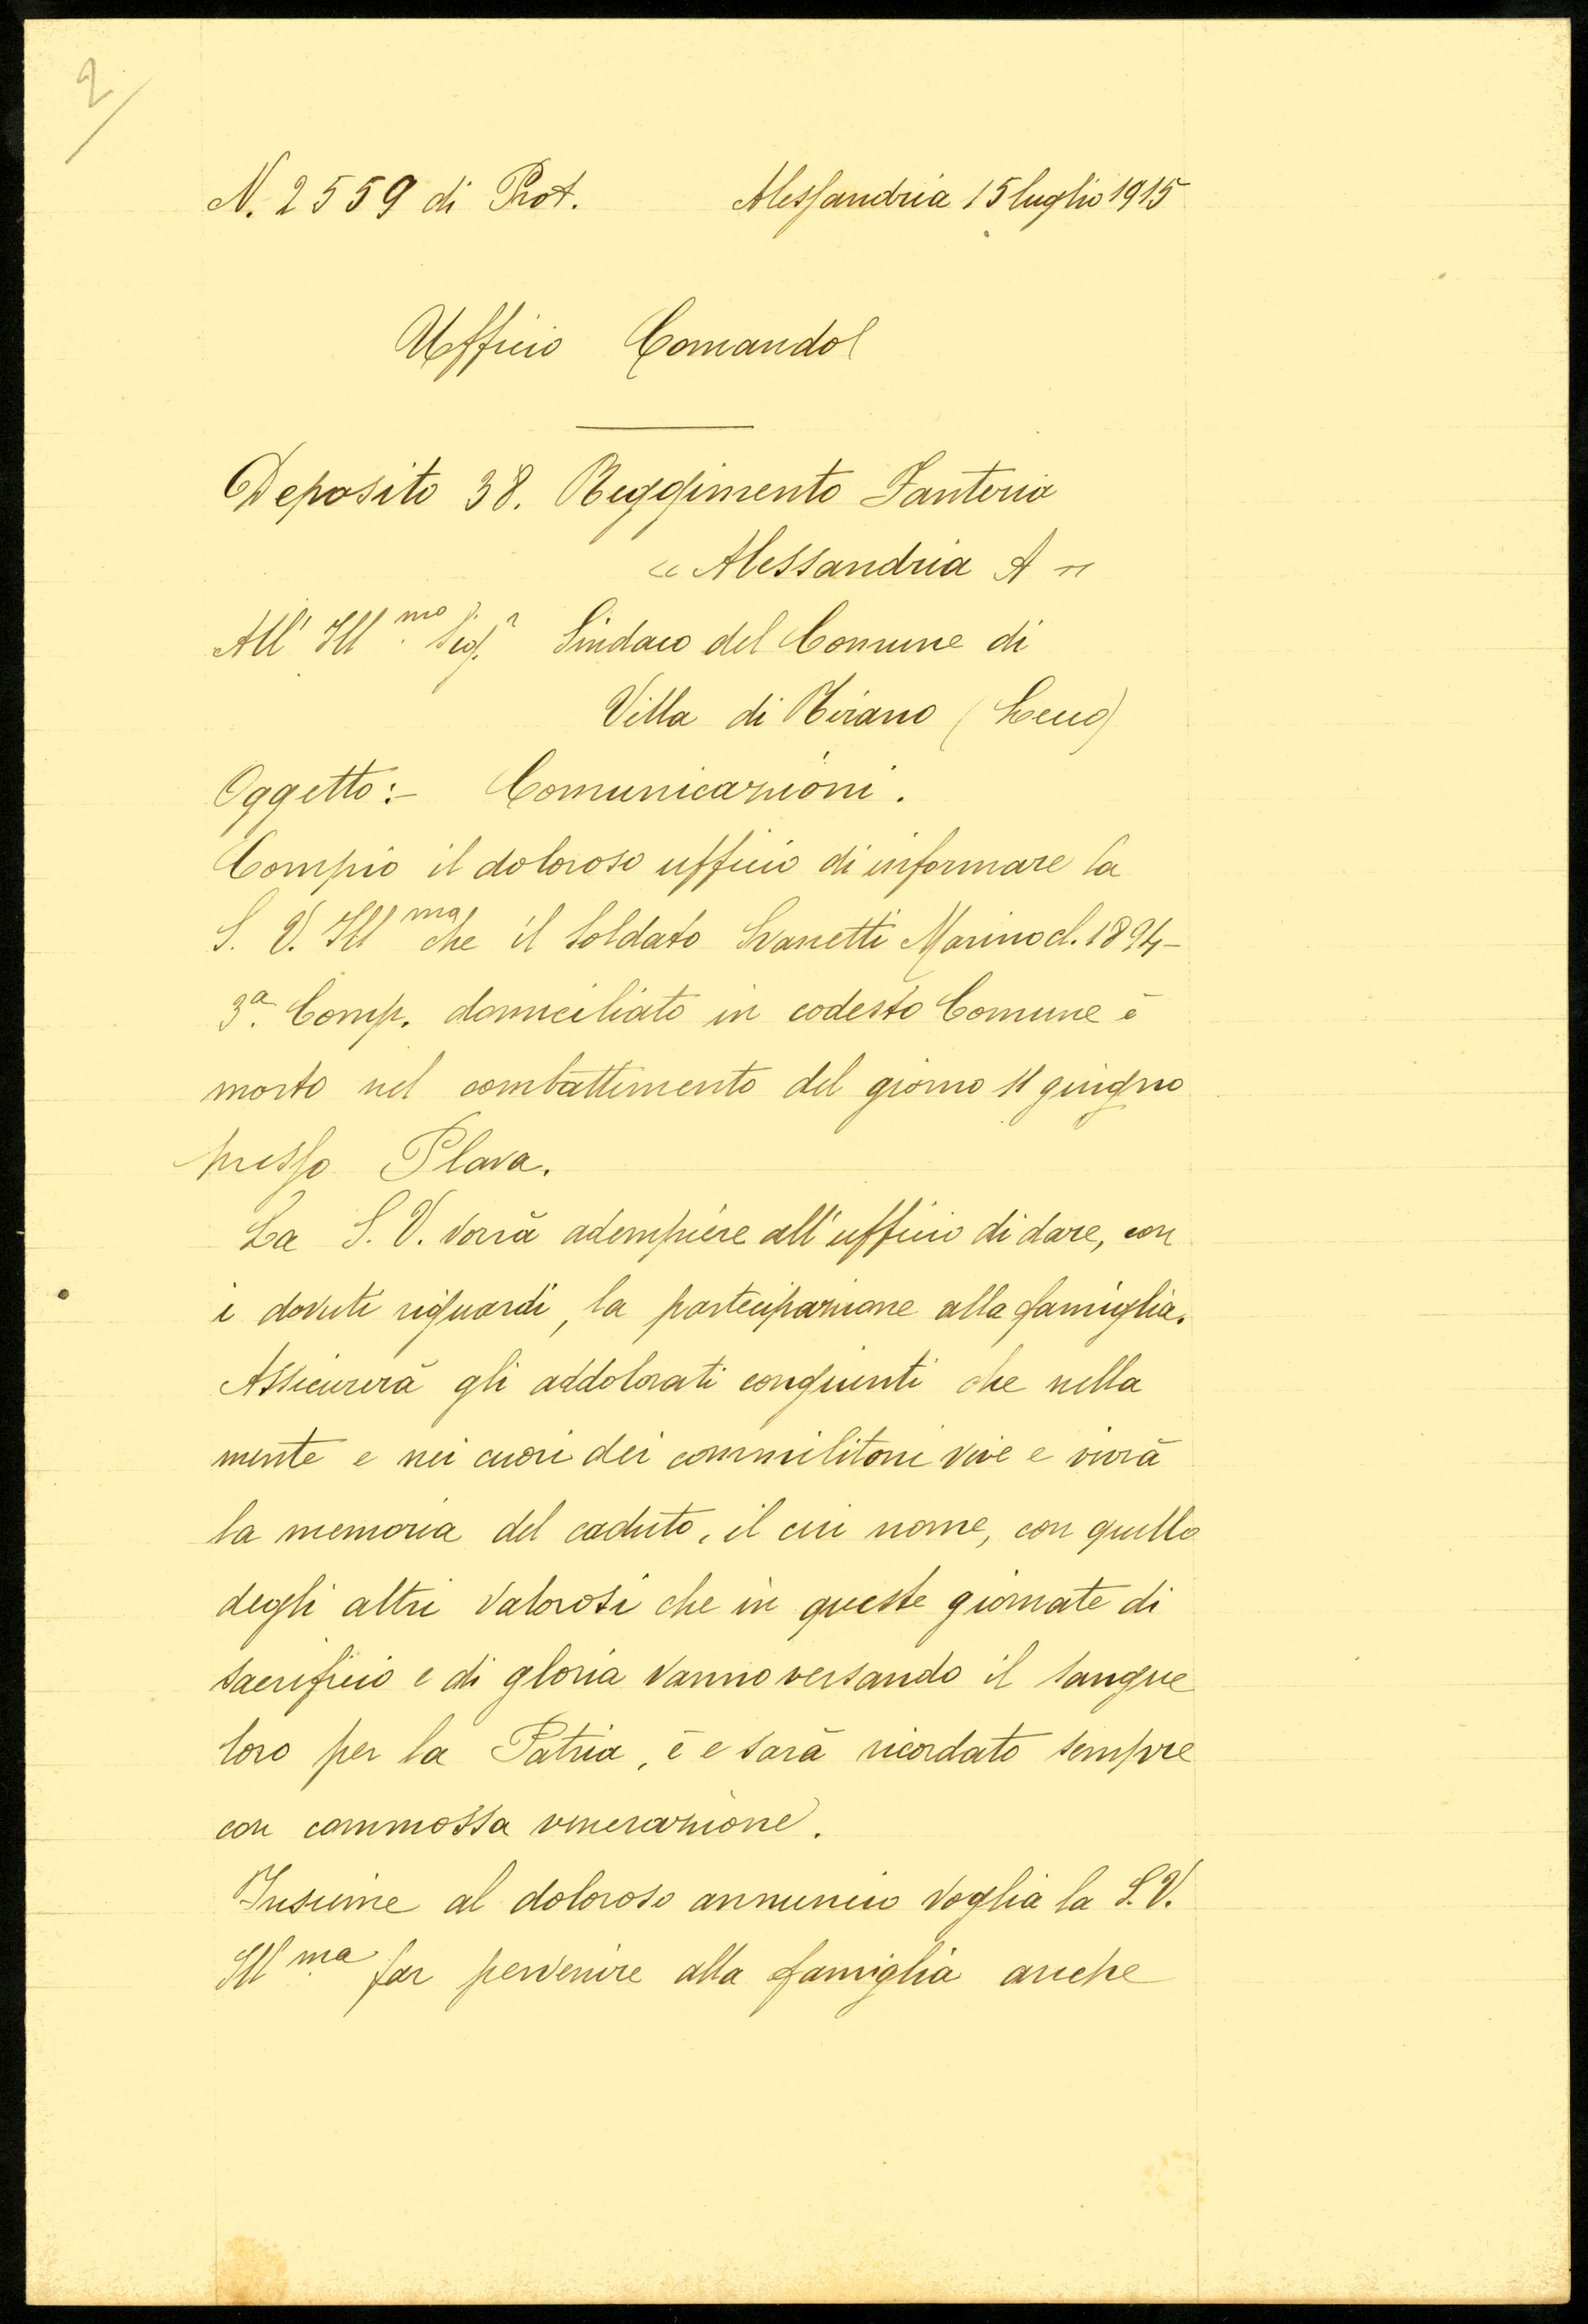 2
N. 2559 di Prot. Alessandria 15 luglio 1915
Ufficio Comando
Deposito 38. Reggimento Fanteria
« Alessandria A »
All' Ill.mo Sig.r Sindaco del Comune di
Villa di Tirano (Lecco)
Oggetto:- Comunicazioni.
Compio il doloroso ufficio di informare la
S. V. Ill ma che il soldato Marino cl. 1894-
3a. Comp. domiciliato in codesto Comune è
morto nel combattimento del giorno 11 giugno
presso Plava.
La S. V. vorrà adempiere all'ufficio di dare, con
i dovuti riguardi, la partecipazione alla famiglia.
Assicurerà gli addolorati congiunti che nella
mente e nei cuori dei commilitoni vive e vivrà
la memoria del caduto, il cui nome, con quello
degli altri valorosi che in queste giornate di
sacrificio e di gloria vanno versando il sangue
loro per la Patria, è e sarà ricordato sempre
con commossa venerazione.
Insieme al doloroso annuncio voglia la S.V.
Ill.ma far pervenire alla famiglia anche